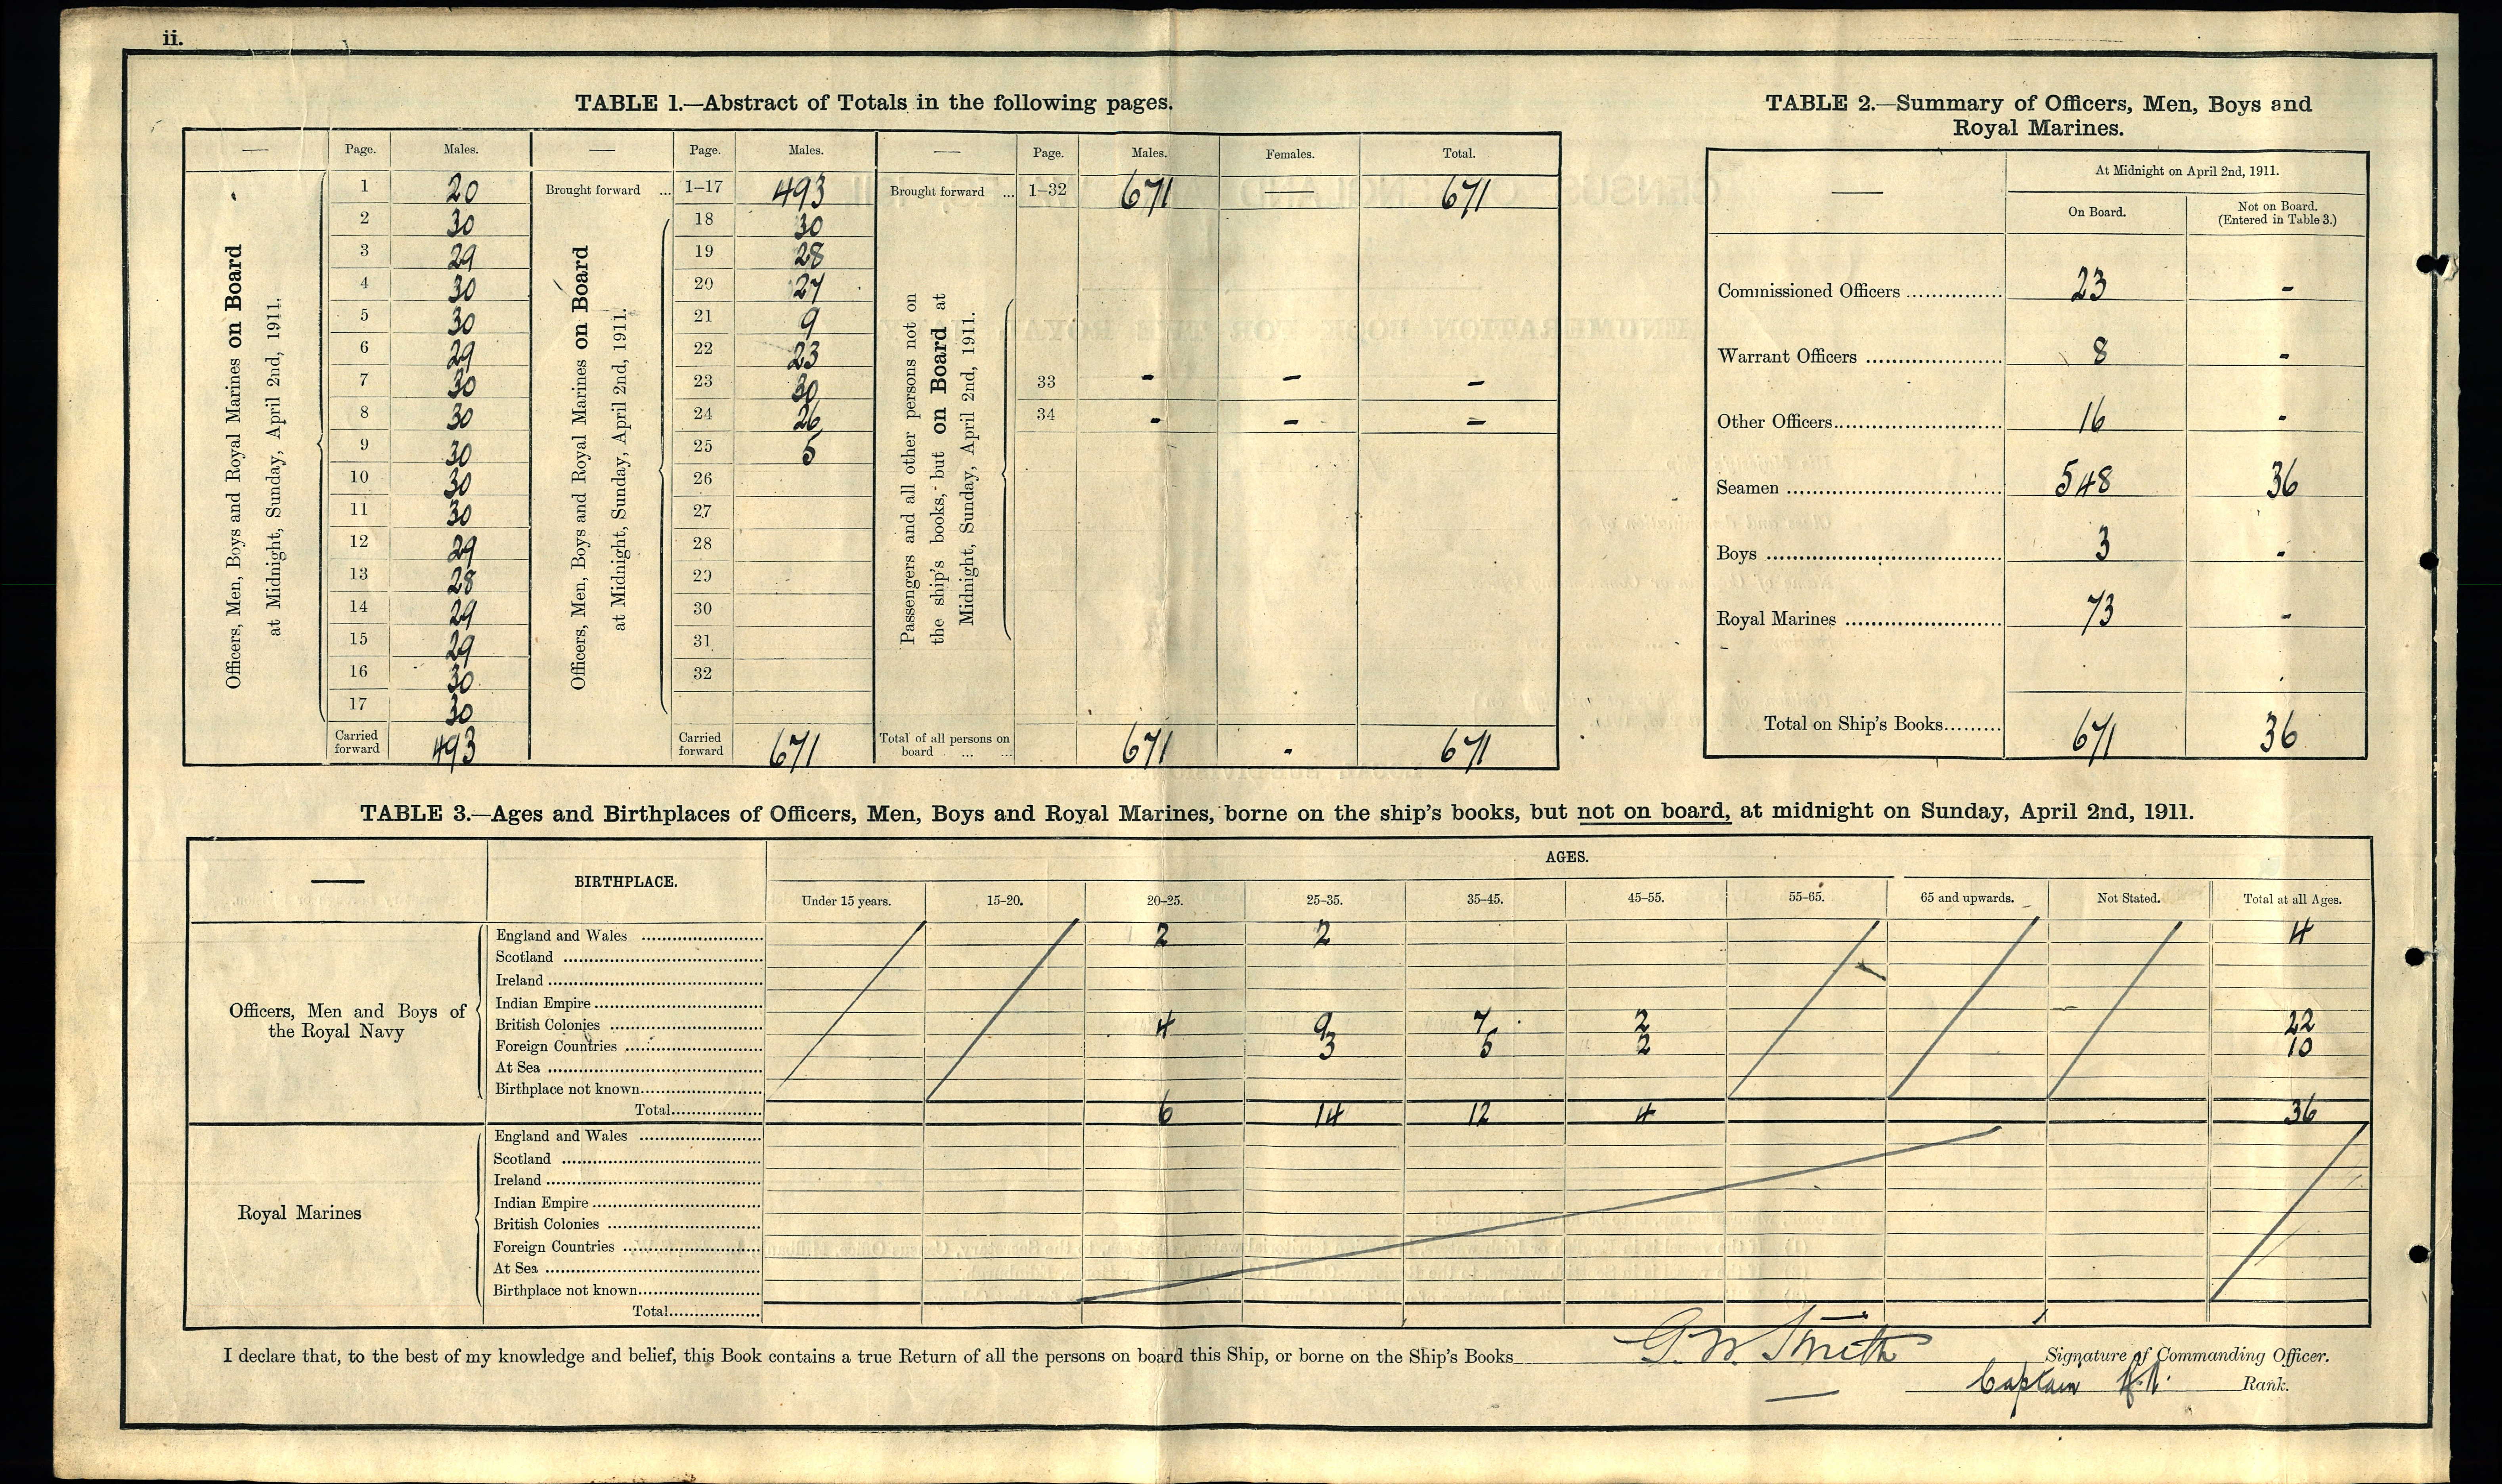 ii.
TABLE 1.—Abstract of Totals in the following pages.
— Page. Males. — Page. Males. — Page. Males. Females. Total.
Officers, Men, Boys and Royal Marines on Board
at Midnight, Sunday, April 2nd, 1911.
1 20
2 30
3 29
4 30
5 30
6 29
7 30
8 30
9 30
10 30
11 30
12 29
13 28
14 29
15 29
16 30
17 30
Carried forward 493
Brought forward ... 1–17 493
Officers, Men, Boys and Royal Marines on Board
at Midnight, Sunday, April 2nd, 1911.
18 30
19 28
20 27
21 9
22 23
23 30
24 26
25 5
26
27
28
29
30
31
32
Carried forward 671
Brought forward ... 1–32 671 — 671
Passengers and all other persons not on
the ship's books, but on Board at
Midnight, Sunday, April 2nd, 1911.
33 - - -
34 - - -
Total of all persons on board ... ... 671 - 671
TABLE 2.—Summary of Officers, Men, Boys and
Royal Marines.
— At Midnight on April 2nd, 1911.
On Board. Not on Board.
(Entered in Table 3.)
Commissioned Officers 23 -
Warrant Officers 8 -
Other Officers 16 -
Seamen 548 36
Boys 3 -
Royal Marines 73 -
Total on Ship's Books 671 36
TABLE 3.—Ages and Birthplaces of Officers, Men, Boys and Royal Marines, borne on the ship's books, but not on board, at midnight on Sunday, April 2nd, 1911.
— BIRTHPLACE. AGES.
Under 15 years. 15–20. 20–25. 25–35. 35–45. 45–55. 55–65. 65 and upwards. Not Stated. Total at all Ages.
Officers, Men and Boys of
the Royal Navy
England and Wales 2 2 4
Scotland
Ireland
Indian Empire
British Colonies 4 9 7 2 22
Foreign Countries 3 5 2 10
At Sea
Birthplace not known
Total 6 14 12 4 36
Royal Marines
England and Wales
Scotland
Ireland
Indian Empire
British Colonies
Foreign Countries
At Sea
Birthplace not known
Total
I declare that, to the best of my knowledge and belief, this Book contains a true Return of all the persons on board this Ship, or borne on the Ship's Books G. W. Smith Signature of Commanding Officer.
Captain R.N. Rank.